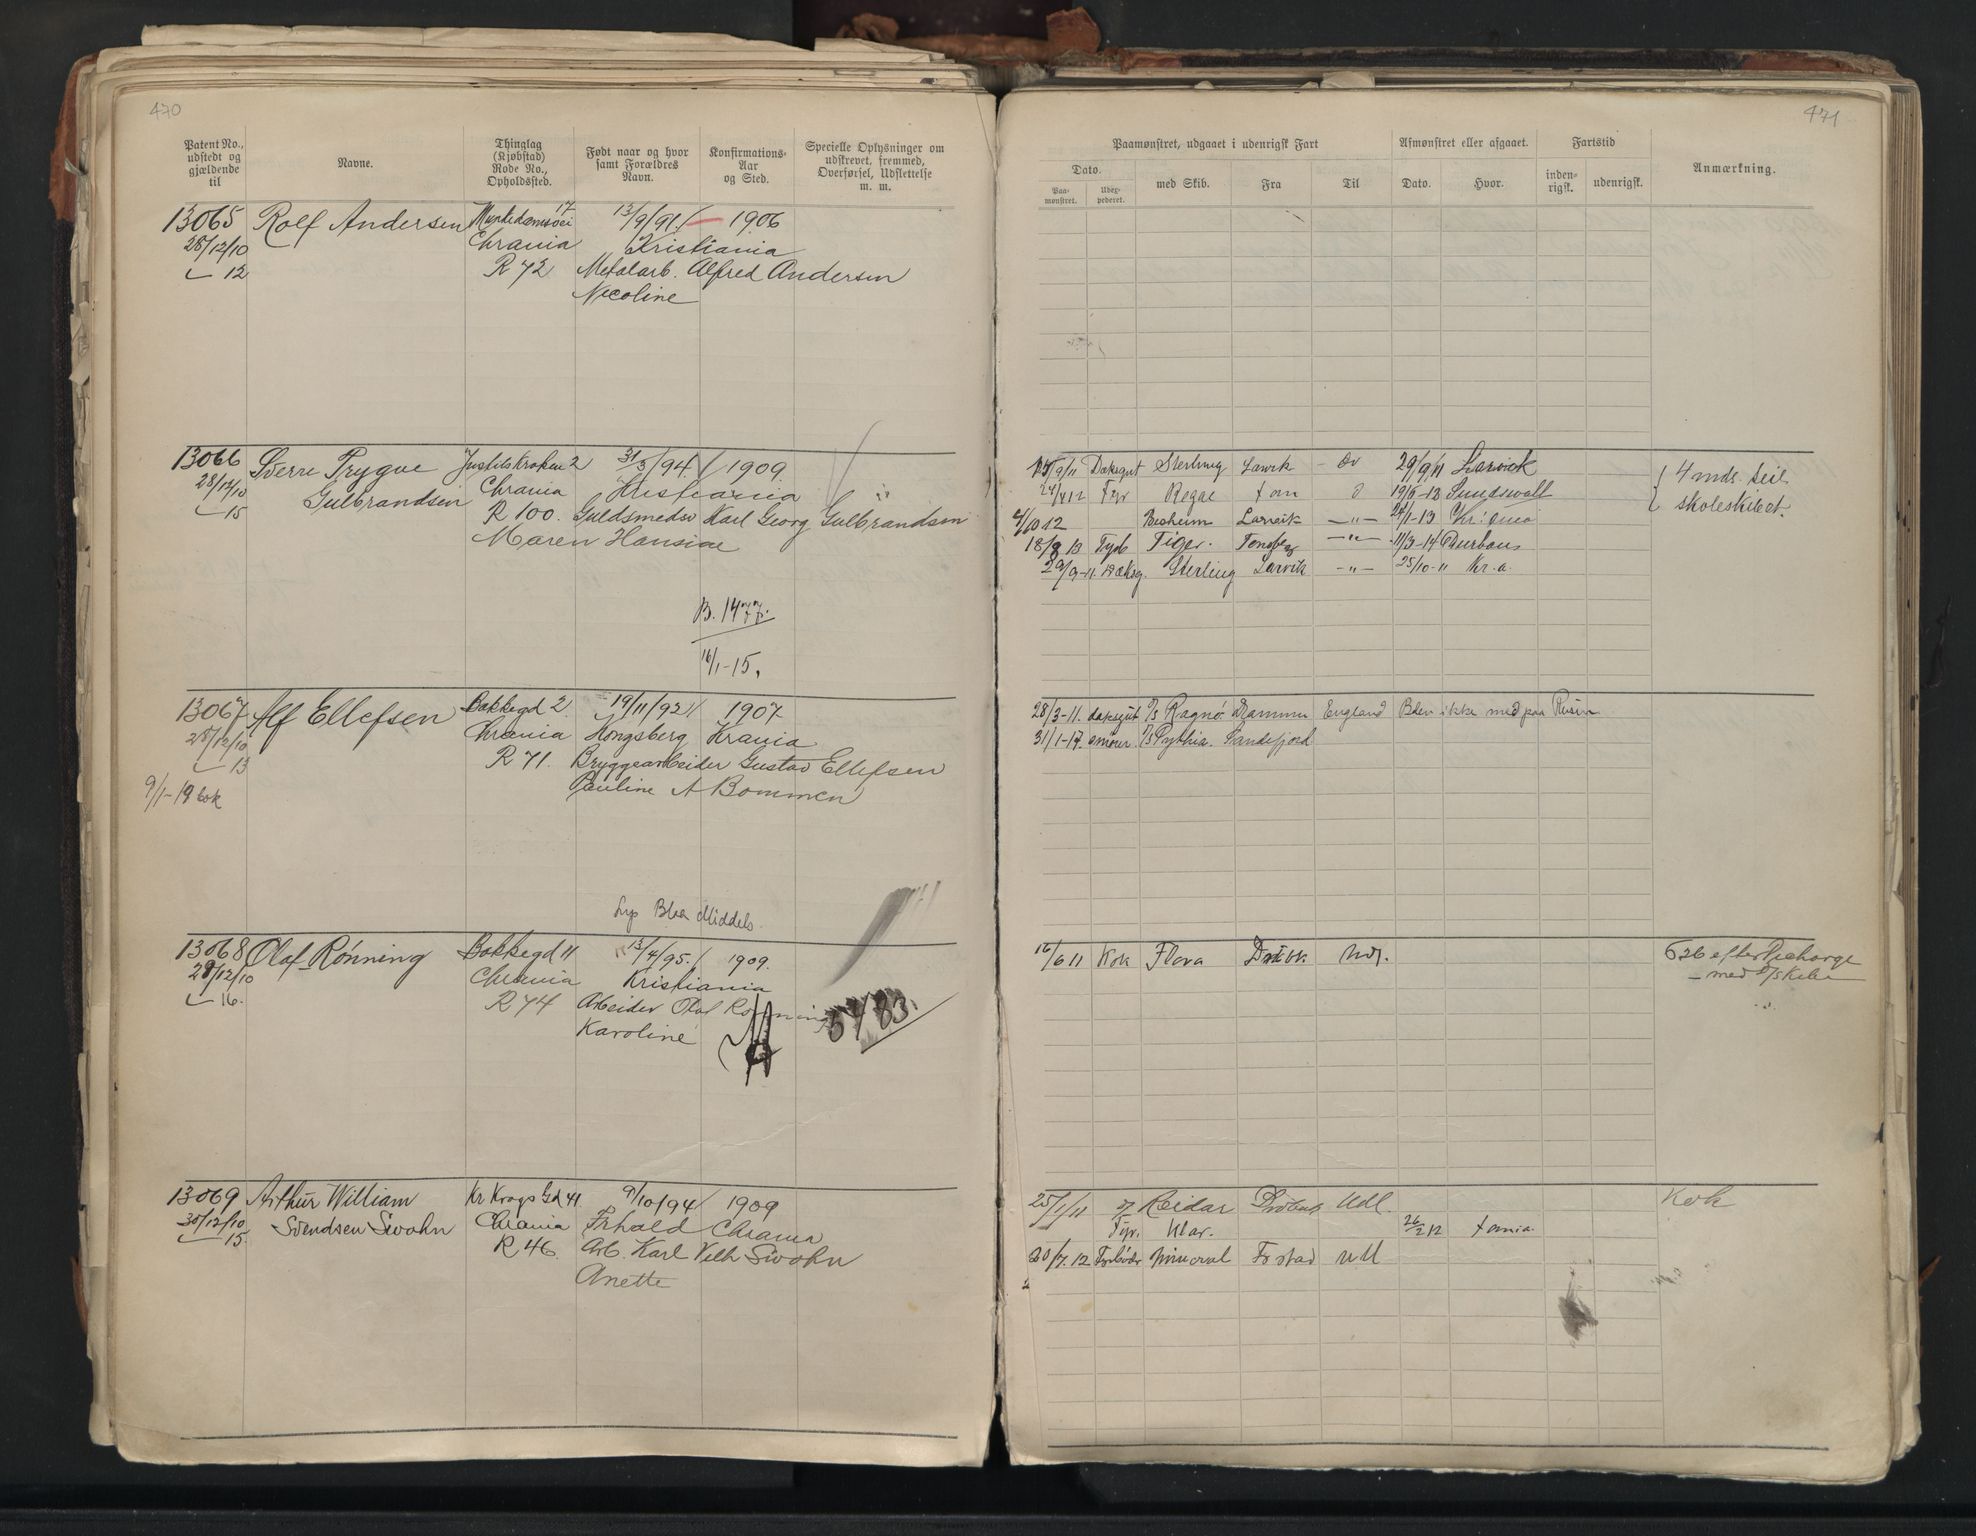 470
Patent No., udstedt og gjældende til
Navne.
Thinglag (Kjøbstad) Rode No., Opholdssted.
Født naar og hvor samt Forældres Navn.
Konfirmations-Aar og Sted.
Specielle Oplysninger om udskrevet, fremmed, Overførsel, Udslettelse m. m.
13065 Rolf Andersen Munkedamsvei 17 13/9/91. 1906
28/12/10 Chrania Kristiania
12 R 72 Metalarb. Alfred Andersen
Nicoline
13066 Sverre Trygve Justitskroken 2 31/3/94. 1909.
28/12/10 Gulbrandsen Chrania Kristiania
15 R 100. Guldsmedsv Karl Georg Gulbrandsen
Maren Hansine
B. 1477.
16/1-15.
13067 Alf Ellefsen Bakkegd 2 19/11/92 1907
28/12/10 Chrania Kongsberg Krania
13 R 71. Bryggearbeider Gustav Ellefsen
9/1-19 bok Pauline A Bommen
Lys Blaa Middels
13068 Olaf Rønning Bakkegd 11 13/4/95. 1909.
28/12/10 Chrania Kristiania
16. R 74 Arbeider Olaf Rønning 5783.
Karoline
13069 Arthur William Kr Krogs Gd 41 9/10/94 1909
30/12/10 Svendsen Sivohn Chrania Frhald Chrania
15. R 46. Arb. Karl Vilh Sivohn
Anette
471
Paamønstret, udgaaet i udenrigsk Fart
Afmønstret eller afgaaet.
Fartstid
Anmærkning.
Dato.
Paa-mønstret.
Uder-pederet.
med Skib.
Fra
Til
Dato.
Hvor.
inden-rigsk.
udenrigsk.
/9/11 Dæksgut Sterling Larvik 29/9/11 Larvick 4 mds. seil
Fyr Regae 19/6-13 Sundswall skoleskibet.
4/10 12 Besheim Larvik -"- 24/1-13 Kr:ania
18/8 13 Fyrb Tiger. Tønsberg -"- 11/3-14 Durban
29/9-11. Dæksg. Sterling Larvik -"- 25/10-11 Kr.a.
28/3-11. dæksgut S/S Ragnø. Drammen England Blev ikke med paa Reisen
31/1-17. S/S Pythia. Sandefjord
16/6 11 Kok Flora Udl. 626 efter
med S/S
25/1/11 Reidar Udl. Kok
Fyr. Klar. 26/2 12
20/7.12 Fyrbøder Mineral Frstad Udl